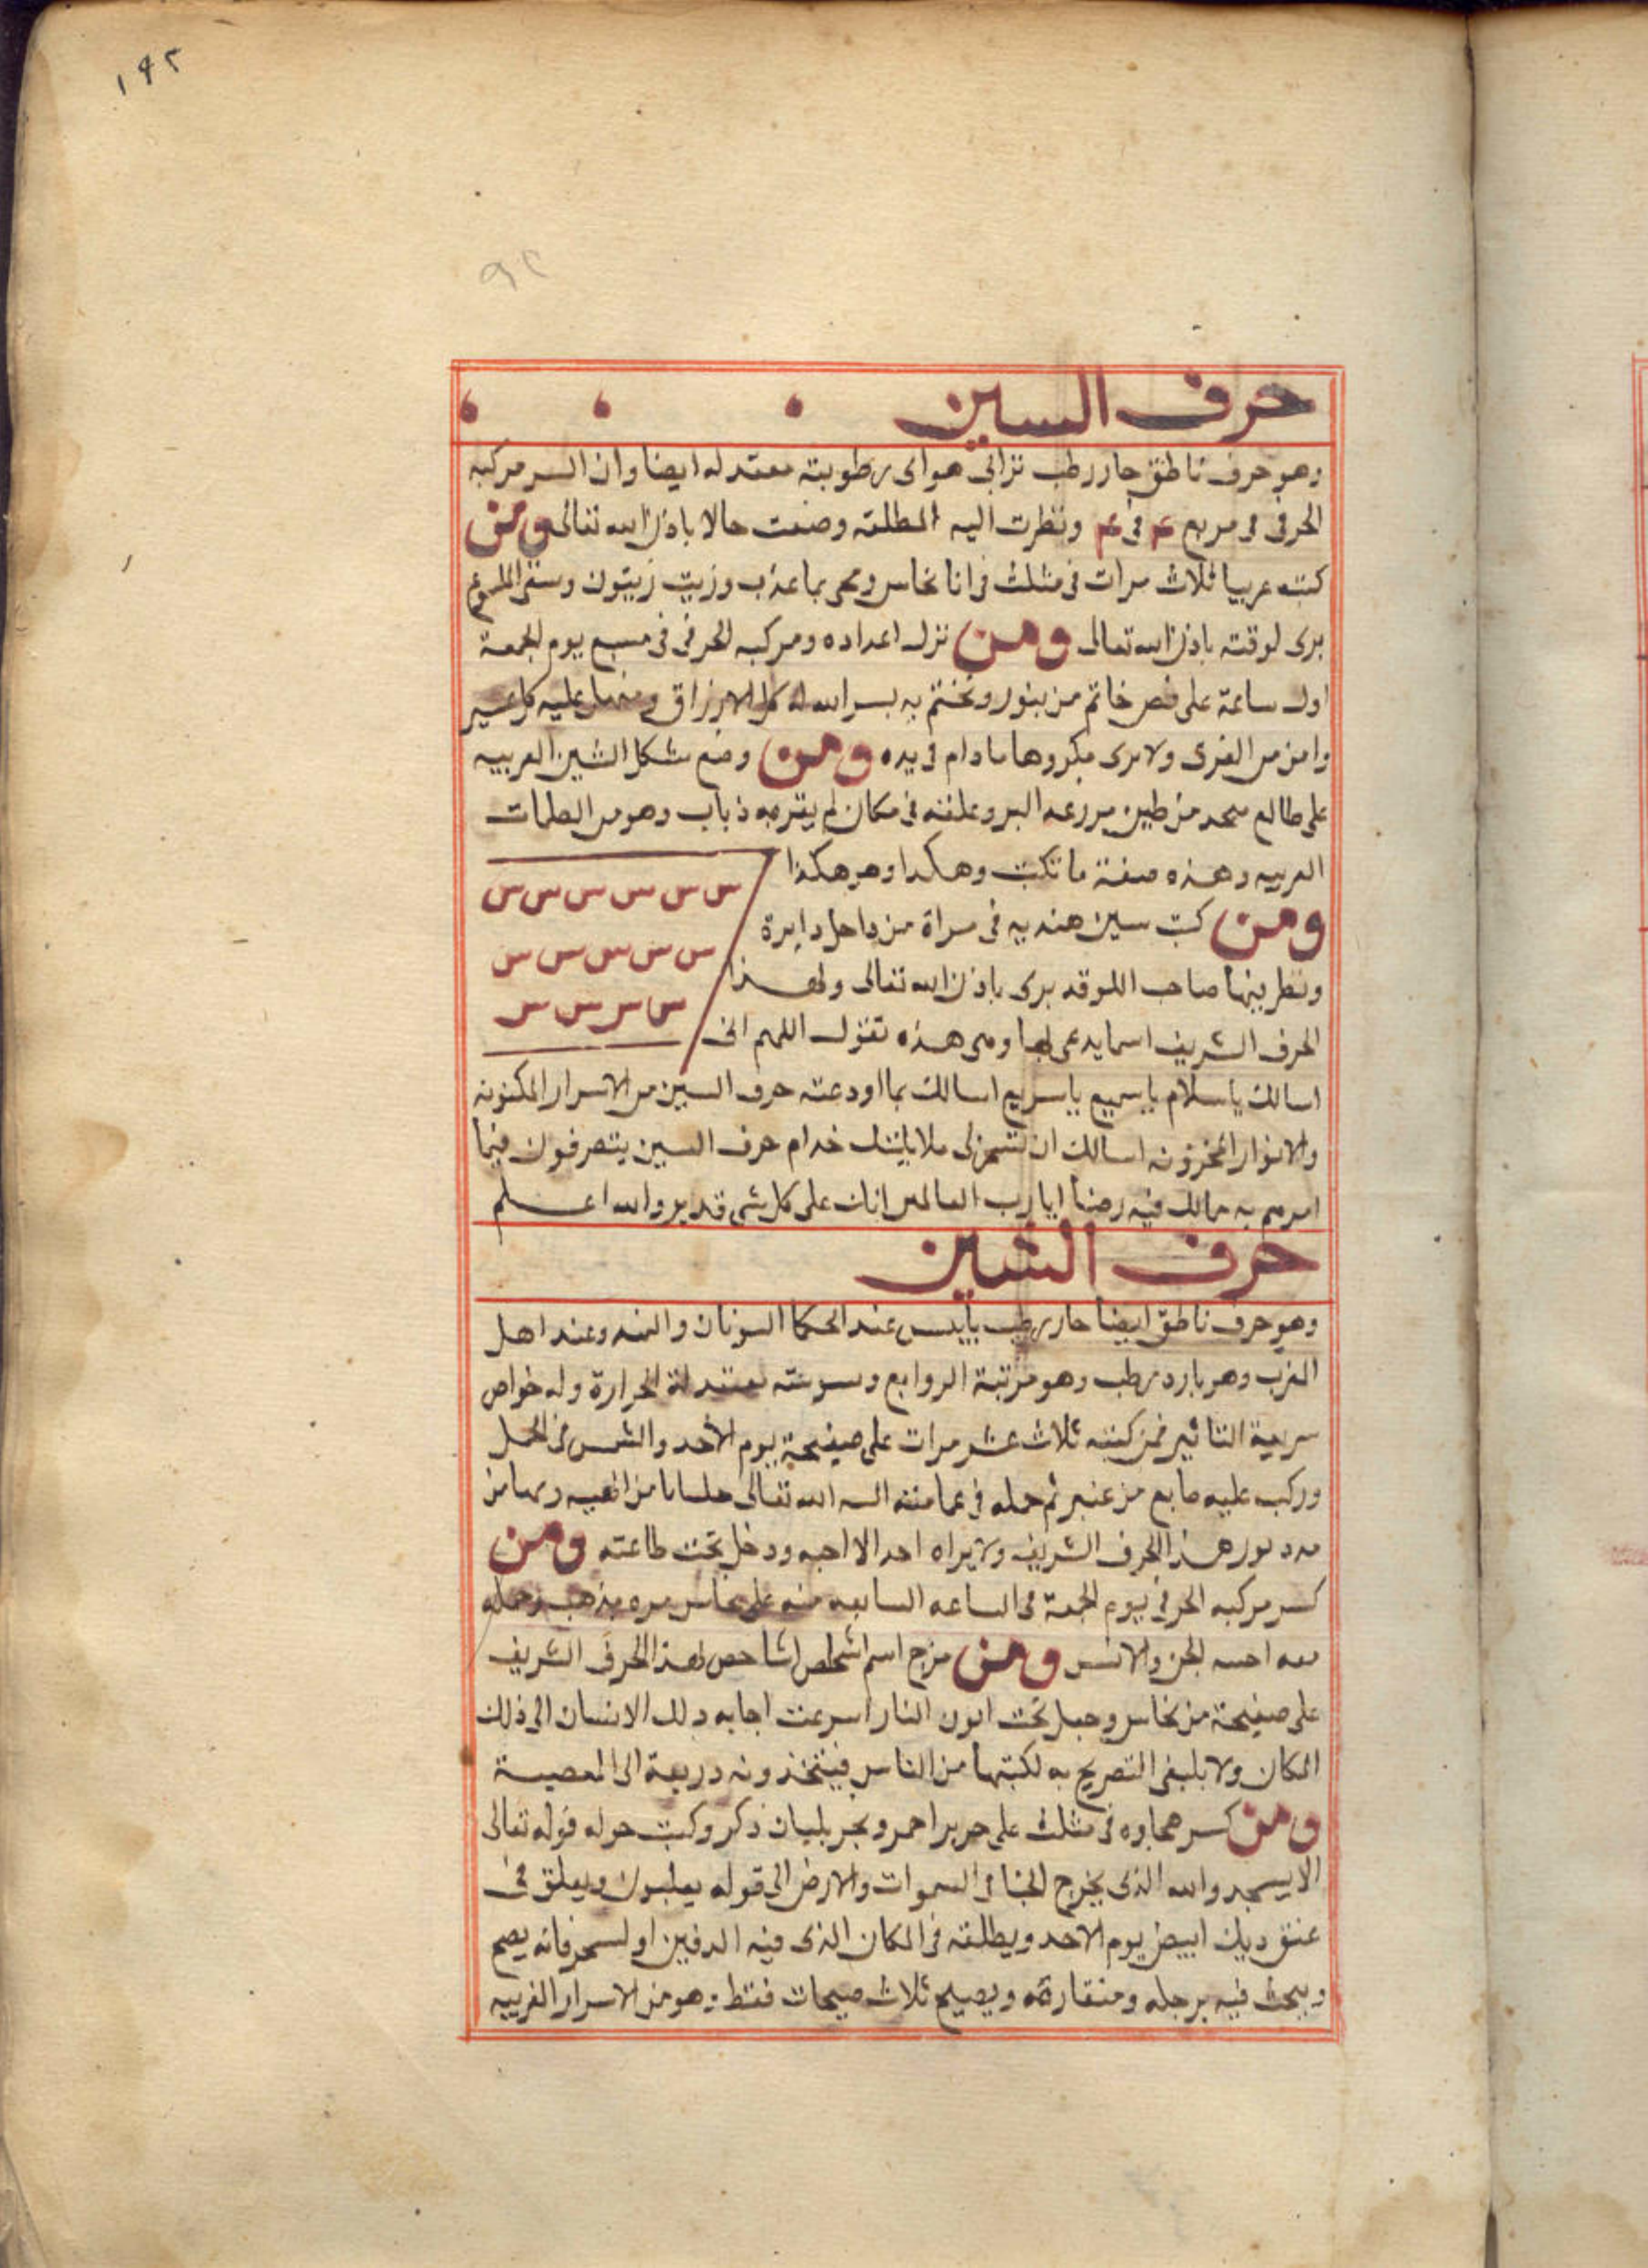 ١٩٢
٩٢
حرف السين
وهو حرف ناطق حار رطب ترابى هواى رطوبته معتدله ايضا وان السر مركبه
الحرفى فى مربع عم فى عم ونظرت اليه المطلقه وضعت حالا باذن الله تعالى ومن
كتبه عربيا ثلاث مرات فى مثلث فى انا نحاس ومحى بما عذب وزيت زيتون وسقى الملسوع
برى لوقته باذن الله تعالى ومن نزل اعداده ومركبه الحرفى فى مسبع يوم الجمعة
اول ساعة على فص خاتم من بنور وتختم به يسر الله له كل الارزاق عليه كل عسير
وامن من الغرق ولا يرى مكروها مادام فى يده ومن وضع شكل الشين العربيه
على طالع من طين مزرعه البر وعلقه فى مكان لم يقربه ذباب وهو من الطلمات
العربيه وهذه صفة ما تكتب وهكدا وهو هكذا
س س س س س س
ومن كتب سين هنديه فى مراة من داخل دايرة
س س س س س
ونظر فيها صاحب اللوقه برى باذن الله تعالى ولهذا
س س س س
الحرف الشريف اسما يدعى بها وهى هذه تقول اللهم انى
اسالك ياسلام ياسميع ياسريع اسالك بما اودعته حرف السين من الاسرار المكنونه
والانوار المخزونه اسالك ان تسخر لى ملايكتك خدام حرف السين يتصرفون فيما
امرهم به مما لك فيه رضا يا رب العالمين انك على كل شى قدير والله اعلم
حرف الشين
وهو حرف ناطق ايضا حار رطب يابس عند الحكما اليونان والهند وعند اهل
الغرب وهو بارد رطب وهو مرتبة الروابع ويبوسته معتدلة الحرارة وله خواص
سريعة التاثير فمن كتبه ثلاث عشر مرات على صفيحة يوم الاحد والشمس فى الحمل
وركب عليه من عنبر ثم حمله فى عمامته البسه الله تعالى جلبابا من الهيبه
نور هذا الحرف الشريف ولا يراه احد الا احبه ودخل تحت طاعته ومن
كسر مركبه الحرفى يوم الجمعة فى الساعه السابعه منه على نحاس بذهب وحمله
معه احبه الجن والانس ومن مزج اسم شخص لهذا الحرف الشريف
على صفيحة من نحاس وجعل تحت اتون النار اسرعت اجابه ذلك الانسان الى ذلك
المكان ولا ينبغى التصريح به لكتبتها من الناس فيتخذونه دريعة الى المعصية
ومن كسر فى مثلث على حرير احمر وبخر بلبان ذكر وكتب حوله قوله تعالى
الا يسجدوا لله الذى يخرج الخبا فى السموات والارض الى قوله يعلنون ويعلق فى
عنق ديك ابيض يوم الاحد ويطلقه فى المكان الذى فيه الدفين او السحر فانه يصح
ويبحث فيه برجله ومنقاره ويصيح ثلاث صيحات فقط وهو من الاسرار الغريبه